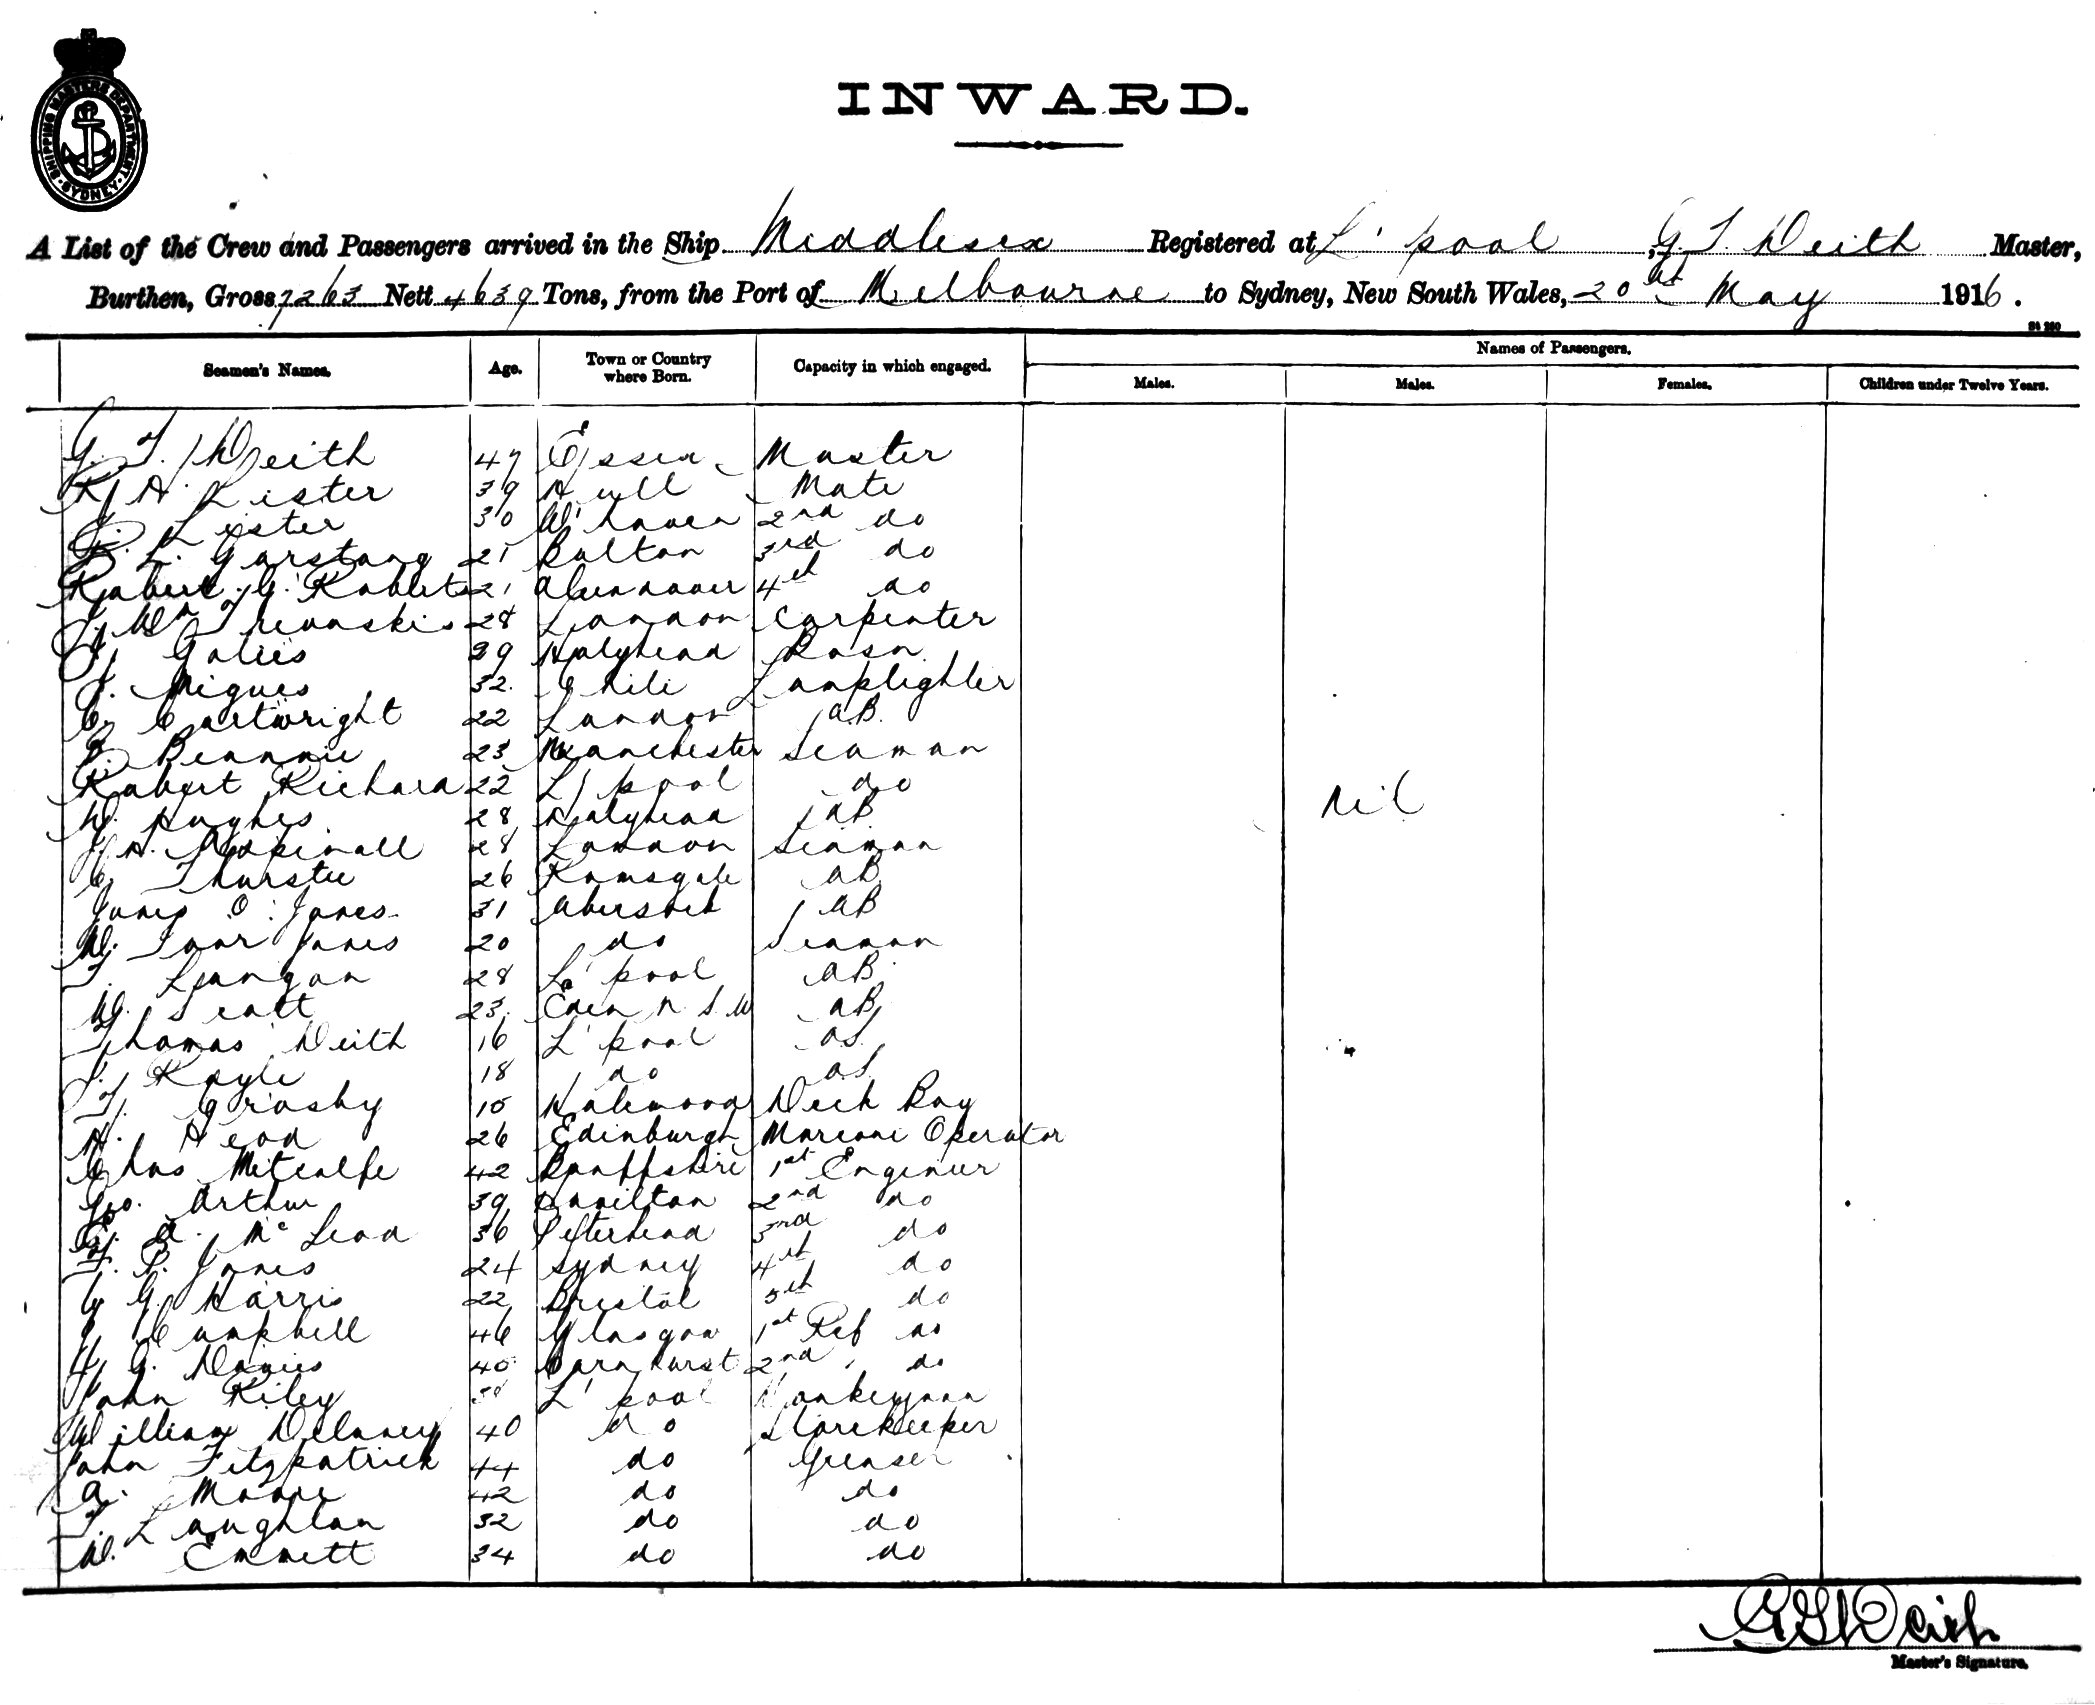 SHIPPING MASTERS DEPARTMENT SYDNEY
INWARD.
A List of the Crew and Passengers arrived in the Ship Middlesex Registered at L'pool, G. T. Deith Master,
Burthen, Gross 7263 Nett 4639 Tons, from the Port of Melbourne to Sydney, New South Wales, 20th May 1916.
Seamen's Names. Age. Town or Country where Born. Capacity in which engaged. Names of Passengers.
Males. Males. Females. Children under Twelve Years.
G. T. Deith 47 Essex Master
A. Lister 39 Hull Mate
Lester 30 W'haven 2nd do
L. Garstang 21 Bolton 3rd do
Robert G. Roberts 21 4th do
Wm 28 London Carpenter
Holyhead Bosn
J. Migues 32 Chili Lamplighter
C. Cartwright 22 London AB
23 Manchester Seaman
Robert Richard 22 L'pool do
W. Hughes 28 Holyhead AB
nil
H. Aspinall 28 London Seaman
C. 26 Ramsgate AB
James O. Jones 31 AB
W. Jones 20 do Seaman
T. Langan 28 L'pool AB
W. Scott 23 Eden N.S.W AB
Thomas Deith 16 L'pool OS
Koyle 18 do OS
T. Crosby Halewood Deck Boy
H. Head 26 Edinburgh Marconi Operator
Chas Metcalfe 42 Banffshire 1st Engineer
Geo. Arthur 39 Hamilton 2nd do
A. McLeod 36 Peterhead 3rd do
P. Jones 24 Sydney 4th do
G. Harris 22 Bristol 5th do
Campbell 46 Glasgow 1st Ref do
G. Davies 40 2nd " do
John Riley 38 L'pool Donkeyman
William Delaney 40 do Storekeeper
John Fitzpatrick 44 do Greaser
A. Moore 42 do do
T. Laughlan 32 do do
W. Emmett 34 do do
G T Deith
Master's Signature.